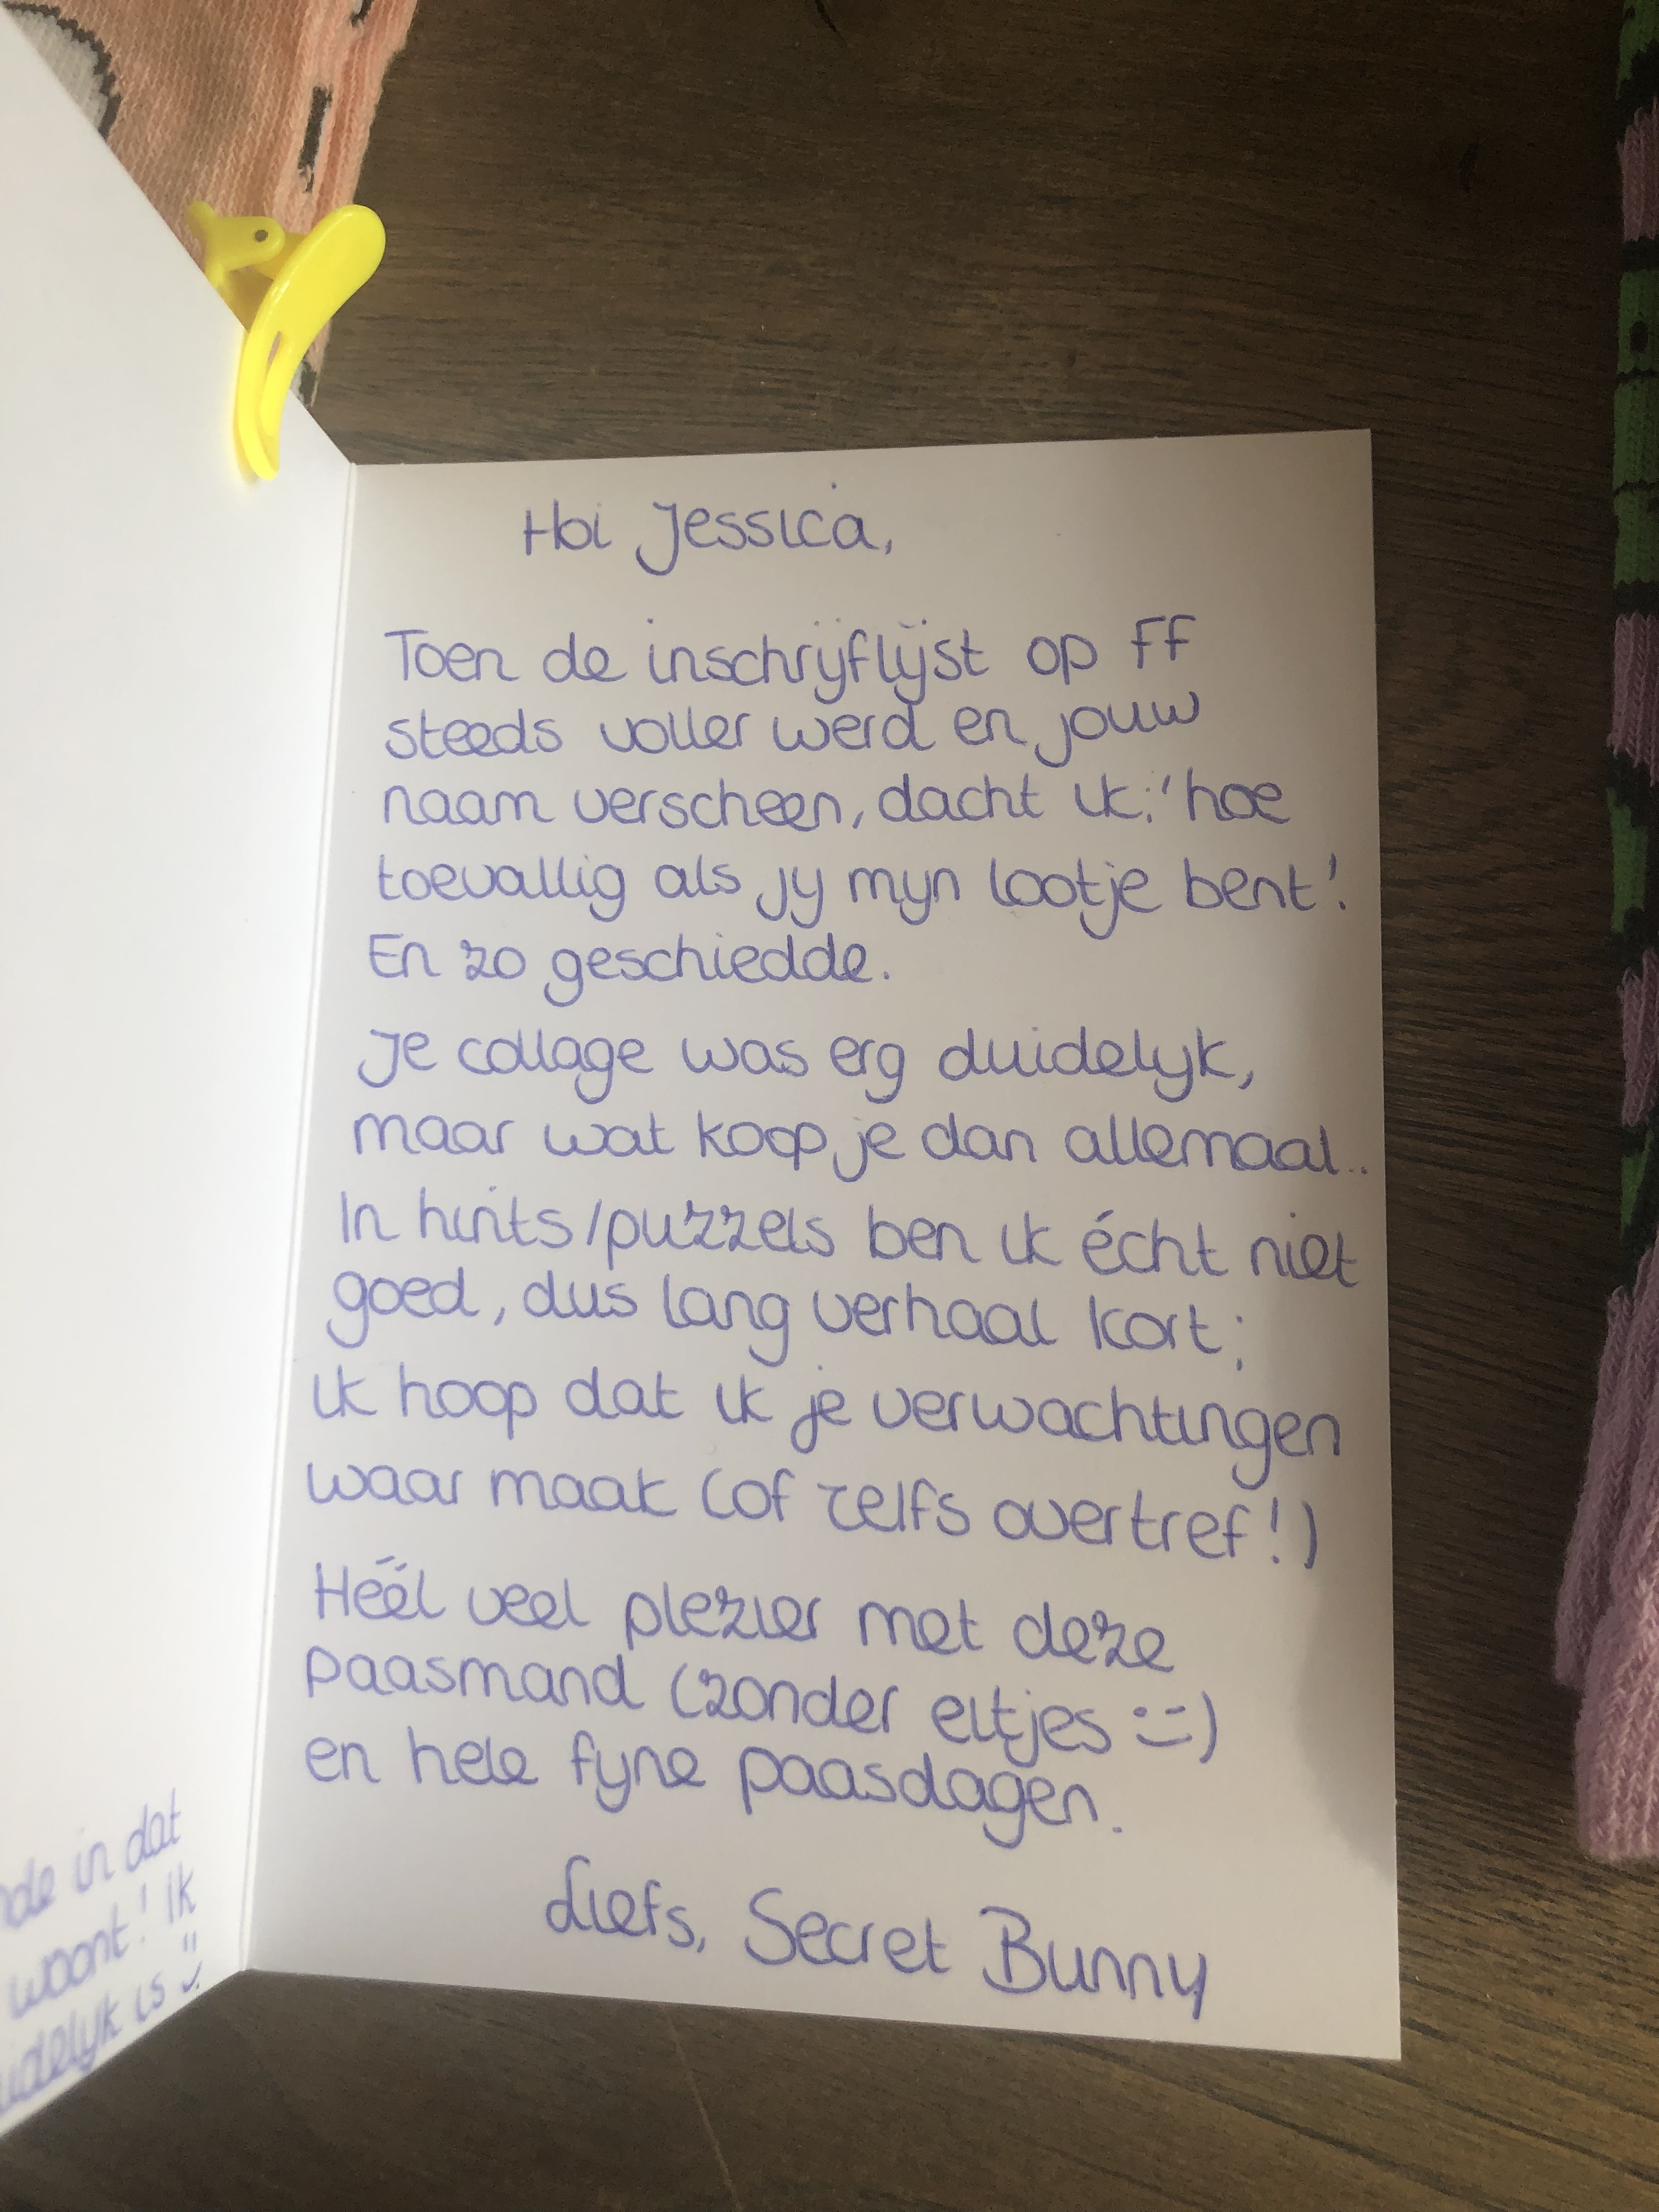 Hoi Jessica,
Toen de inschrijflijst op FF
steeds voller werd en jouw
naam verscheen, dacht ik: 'hoe
toevallig als jij mijn lootje bent'!
En zo geschiedde.
Je collage was erg duidelijk,
maar wat koop je dan allemaal..
In hints/puzzels ben ik écht niet
goed, dus lang verhaal kort;
ik hoop dat ik je verwachtingen
waar maak (of zelfs overtref!)
Héél veel plezier met deze
paasmand (zonder eitjes :=)
en hele fijne paasdagen.
Liefs, Secret Bunny
in dat
woont! ik
is